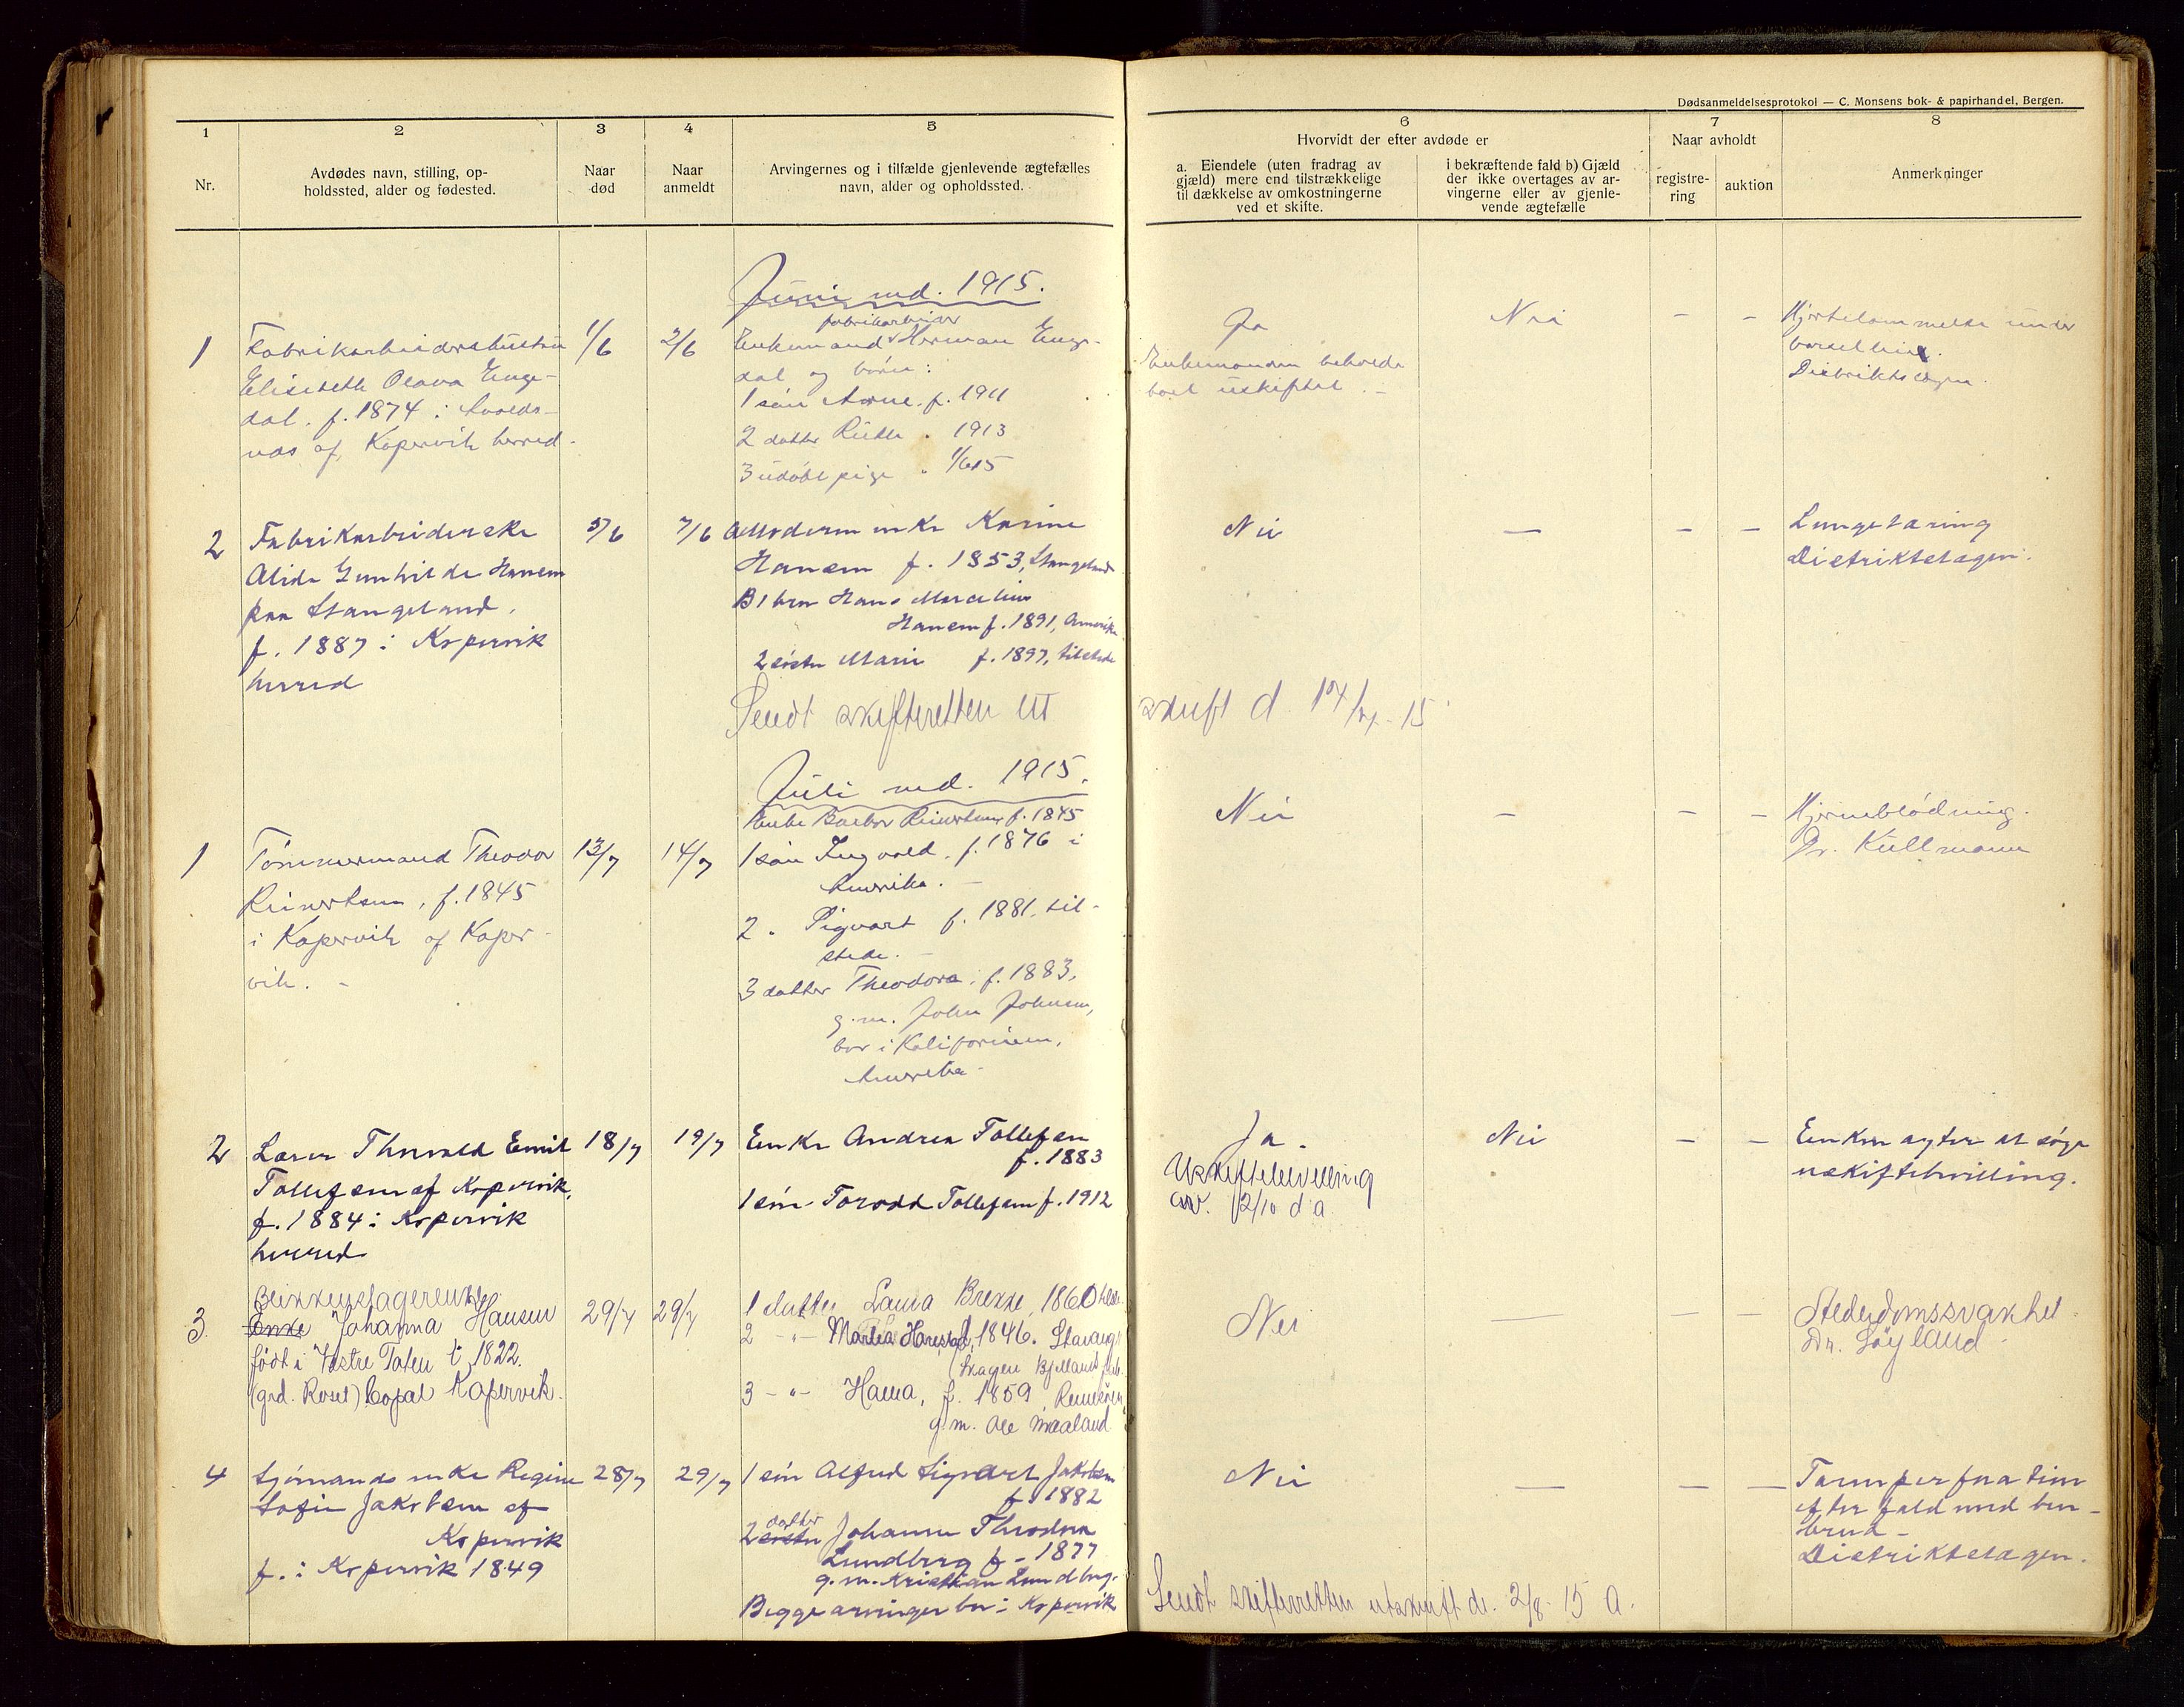 Dødsanmeldelsesprotokol — C. Monsens bok- & papirhandel, Bergen.
1
2
3
4
5
6
7
8
Nr.
Avdødes navn, stilling, op-
holdssted, alder og fødested.
Naar
død
Naar
anmeldt
Arvingernes og i tilfælde gjenlevende ægtefælles
navn, alder og opholdssted.
Hvorvidt der efter avdøde er
a. Eiendele (uten fradrag av
gjæld) mere end tilstrækkelige
til dækkelse av omkostningerne
ved et skifte.
i bekræftende fald b) Gjæld
der ikke overtages av ar-
vingerne eller av gjenle-
vende ægtefælle
Naar avholdt
registre-
ring
auktion
Anmerkninger
Juni md. 1915.
1
Fabrikarbeidershustru
Elisabeth Olava Enge-
dal. f. 1874 i
af Kopervik herred.
1/6
2/6
fabrikarbeider
Enkemand Herman Enge-
dal og børn:
1 søn Arne. f. 1911
2 datter Ruth " 1913
3 udøbt pige " 1/6 15
Ja
Enkemanden beholder
boet uskiftet. -
Nei
-
-
Hjertelammelse under
barselseng.
Distriktslægen.
2
Fabrikarbeiderske
Alida Gunhilde Hansen
paa Stangeland.
f. 1887 i Kopervik
herred
5/6
7/6
Moderen enke Karine
Hansen f. 1853, Stangeland
B 1 bror Hans Marselius
Hansen f. 1891, Amerika
2 søster Marie f. 1897, tilstede
Nei
—
-
-
Lungetæring
Distriktslægen.
Sendt skifteretten ut
skrift d. 14/7 - 15
Juli md. 1915.
1
Tømmermand Theodor
Reinertsen, f. 1845
i Kopervik af Koper-
vik. -
13/7
14/7
Enke Barbro Reinertsen f. 1845
1 søn Ingvald. f. 1876 i
Amerika. -
2 " Sigvart f. 1881, til-
stede. -
3 datter Theodora, f. 1883,
g. m. John Johnsen,
bor i Kalifornien,
Amerika -
Nei
-
-
-
Hjerneblødning.
Dr. Kullmann
2
Lærer Thorvald Emil
Tollefsen af Kopervik,
f. 1884 i Kopervik
herred
18/7
19/7
Enke Andrea Tollefsen
f. 1883
1 søn Torodd Tollefsen f. 1912
Ja.
Uskiftebevilling
av. 2/10 d. a.
Nei
-
-
Enken agter at søge
uskiftebevilling.
3
Blikkenslagerenke
Enke Johanna Hansen
født i Vestre Toten i 1822.
(grd. Roset) bopæl Kopervik.
29/7
29/7
1 datter Laura Brekke, 1860
2 -"- Martha Harestad, 1846. Stavanger
(Skagen
3 -"- Hanna, f. 1859, Rennesøen
g. m. Ole Maaland
Nei
—
-
-
Alderdomssvakhet
Dr. Løyland
4
Sjømands enke Regine
Sofie Jakobsen af
Kopervik
f. i Kopervik 1849
28/7
29/7
1 søn Alfred Sigvart Jakobsen
f. 1882
datter
2 søster Johanne Theodora
Lundberg f - 1877
g. m. Kristian Lundberg.
Begge arvinger bor i Kopervik
Nei
—
—
—
Tarmperforation
efter fald med ben-
brud -
Distriktslægen.
Sendt skifteretten utskrift d. 2/8 - 15 A.